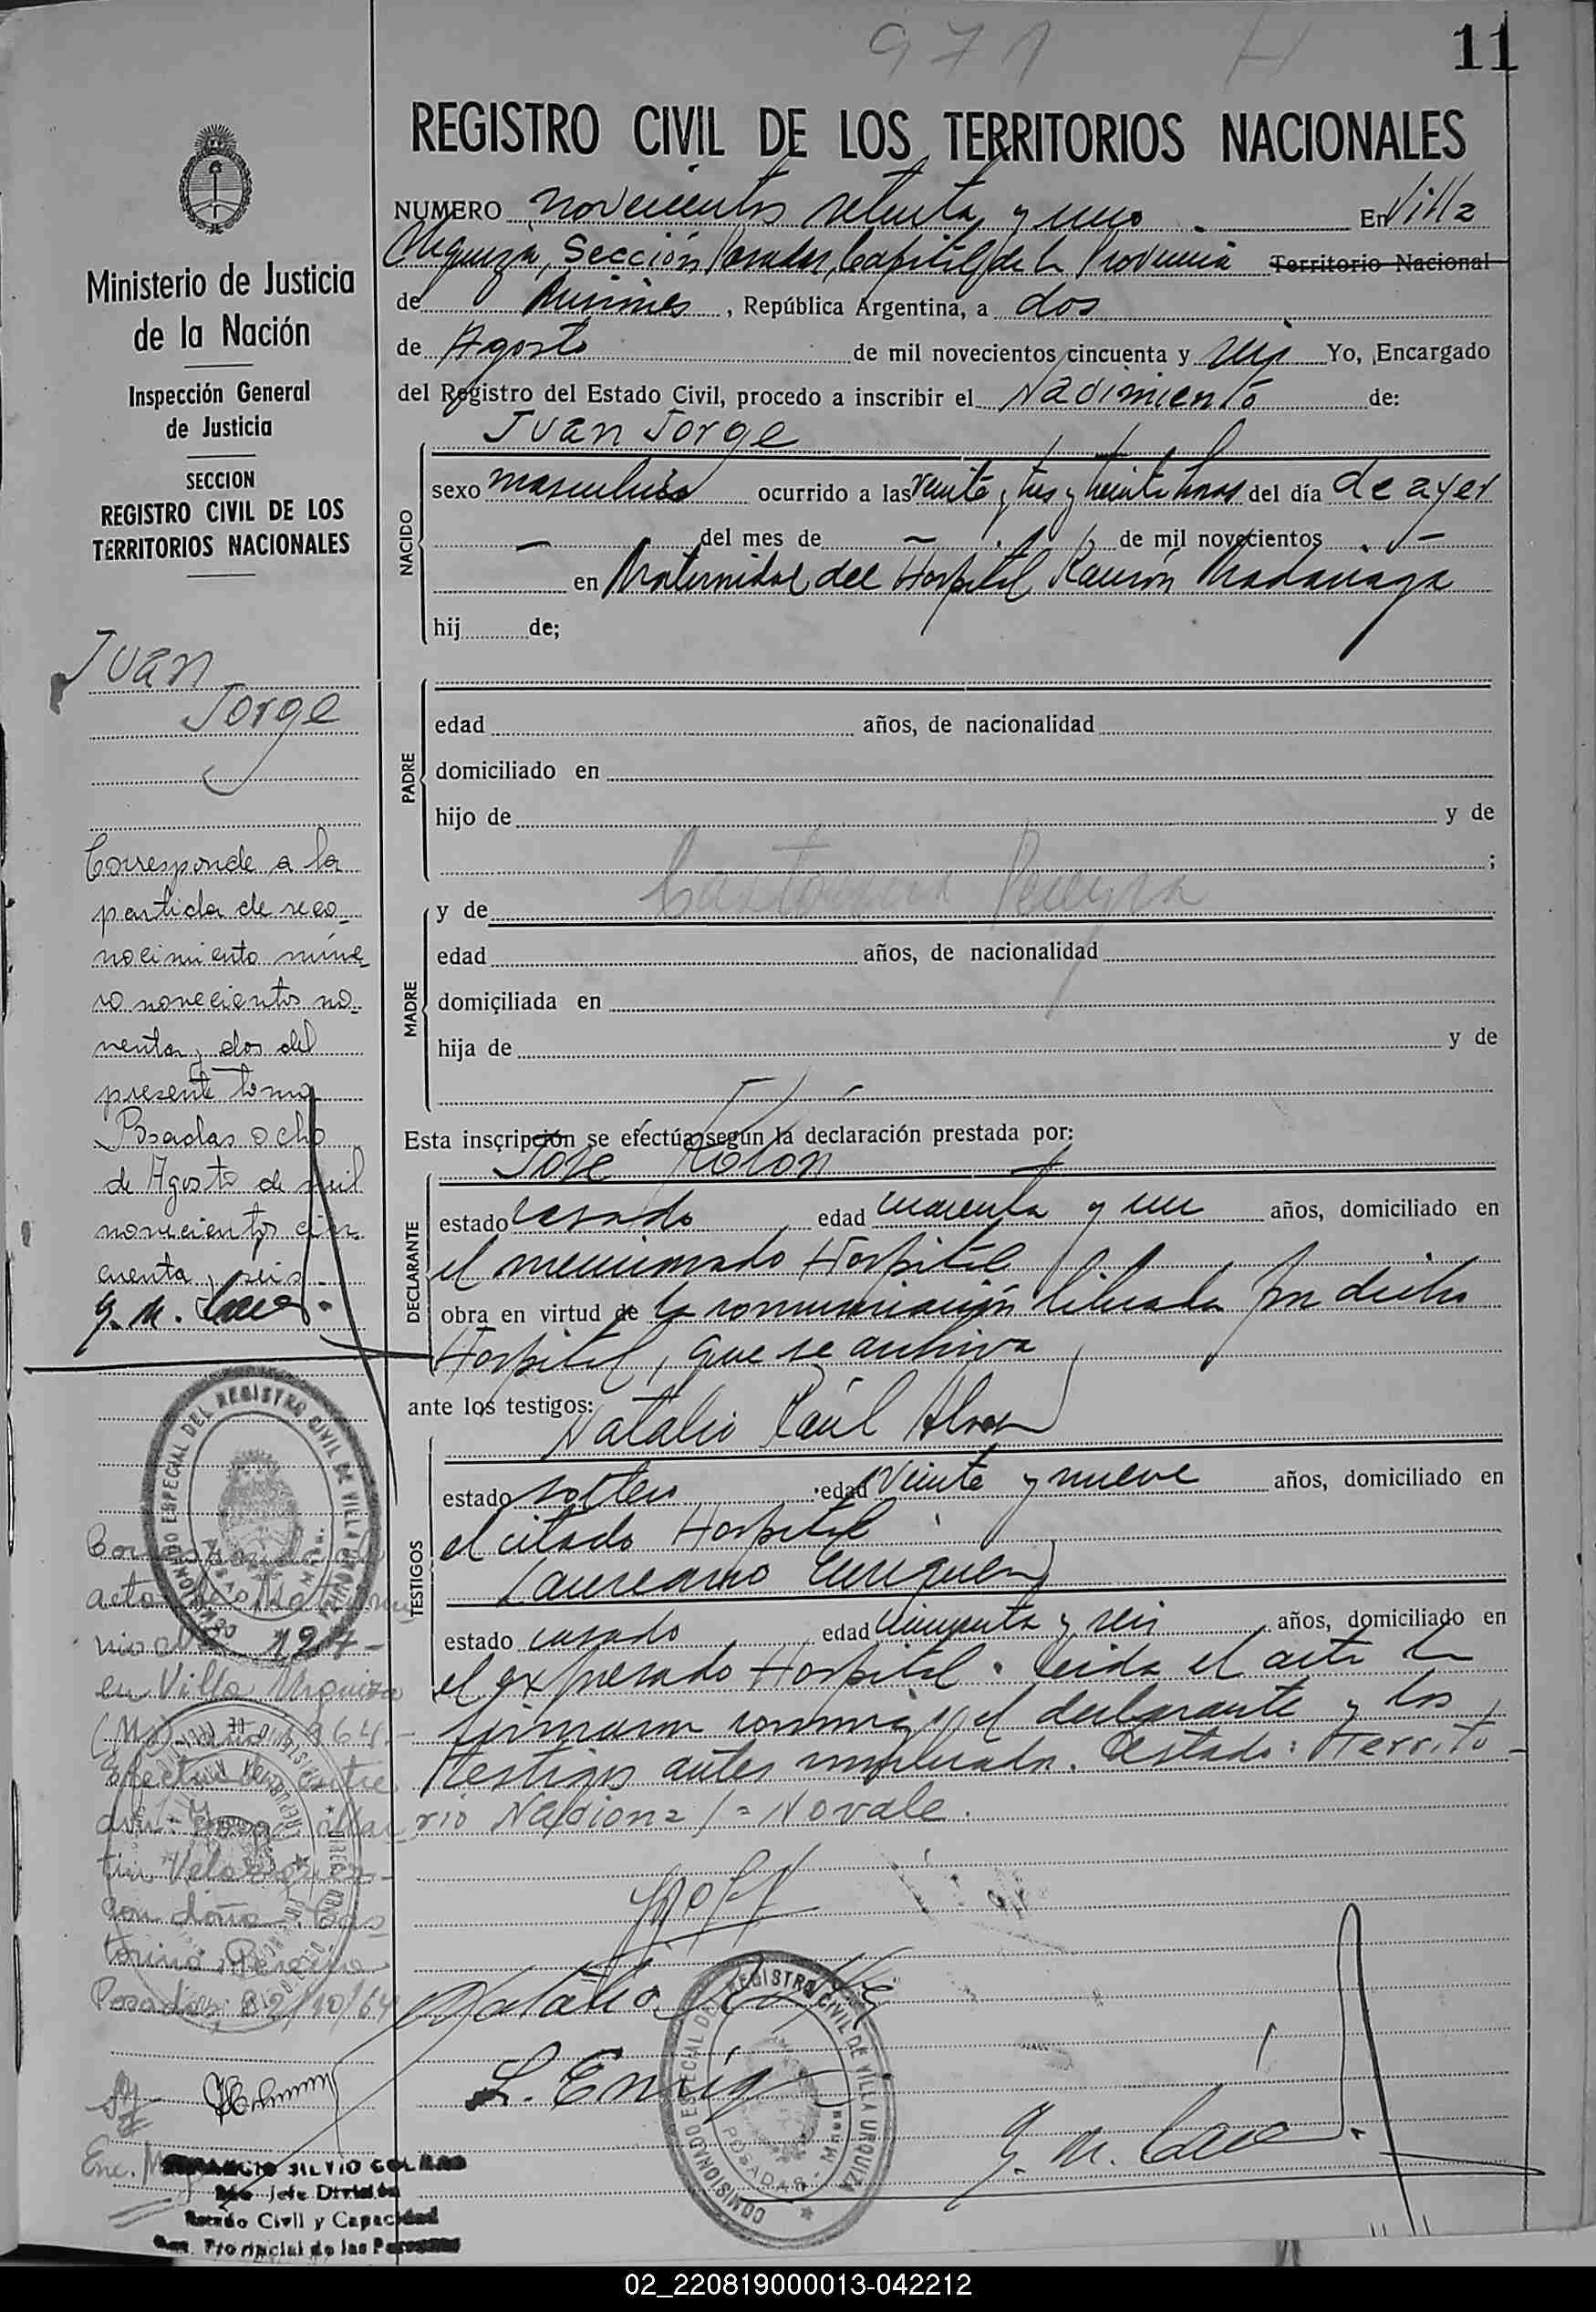 971 H
11
REGISTRO CIVIL DE LOS TERRITORIOS NACIONALES
NUMERO novecientos setenta y uno. En Villa
Urquiza, Sección Posadas, Capital de la Provincia Territorio Nacional
de Misiones, República Argentina, a dos
de Agosto de mil novecientos cincuenta y seis Yo, Encargado
del Registro del Estado Civil, procedo a inscribir el Nacimiento de:
Juan Jorge
NACIDO
sexo masculino ocurrido a las veinte y tres y treinta horas del día de ayer
— del mes de — de mil novecientos —
en Maternidad del Hospital Ramón Madariaga
hij de;
PADRE
edad años, de nacionalidad
domiciliado en
hijo de y de
;
MADRE
y de Castorina Pereyra
edad años, de nacionalidad
domiciliada en
hija de y de
Esta inscripción se efectúa según la declaración prestada por:
José Kolon
DECLARANTE
estado casado edad cuarenta y un años, domiciliado en
el mencionado Hospital
obra en virtud de la comunicación librada por dicho
Hospital, que se archiva
ante los testigos:
Natalio Raúl
TESTIGOS
estado soltero edad veinte y nueve años, domiciliado en
el citado Hospital
Laureano Enriquez
estado casado edad cincuenta y seis años, domiciliado en
el expresado Hospital. Leida el acta la
firmaron conmigo el declarante y los
testigos antes nombrados. Testado: Territo-
rio Nacional = No vale.
Natalio
L. Enriq
COMISIONADO ESPECIAL DEL REGISTRO CIVIL DE VILLA URQUIZA
POSADAS - Mnes.
Ministerio de Justicia
de la Nación
Inspección General
de Justicia
SECCION
REGISTRO CIVIL DE LOS
TERRITORIOS NACIONALES
Juan
Jorge
Corresponde a la
partida de reco-
nocimiento núme-
ro novecientos no-
venta y dos del
presente tomo
Posadas ocho
de Agosto de mil
novecientos cin-
cuenta y seis.
COMISIONADO ESPECIAL DEL REGISTRO CIVIL DE VILLA URQUIZA
POSADAS - Mnes.
acto de Matrimo
nio 127-
en Villa Urquiza
(Ms) año 1964-
Efectuado entre
don: Juan Mar
tin Velazquez-
con doña: Cas
torina Pereira
Posadas, 22/10/64
SILVIO
Jefe División
Estado Civil y Capacidad
Provincial de las Personas
02_220819000013-042212